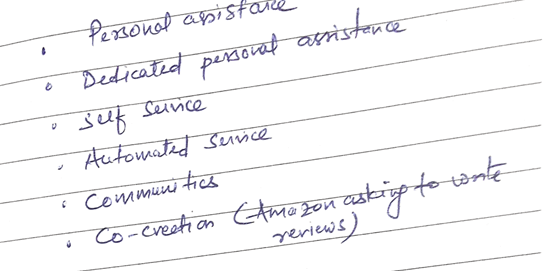 • Personal assistance
• Dedicated personal assistance
• Self Service
• Automated Service
• Communities
• Co-creation (Amazon asking to write
reviews)